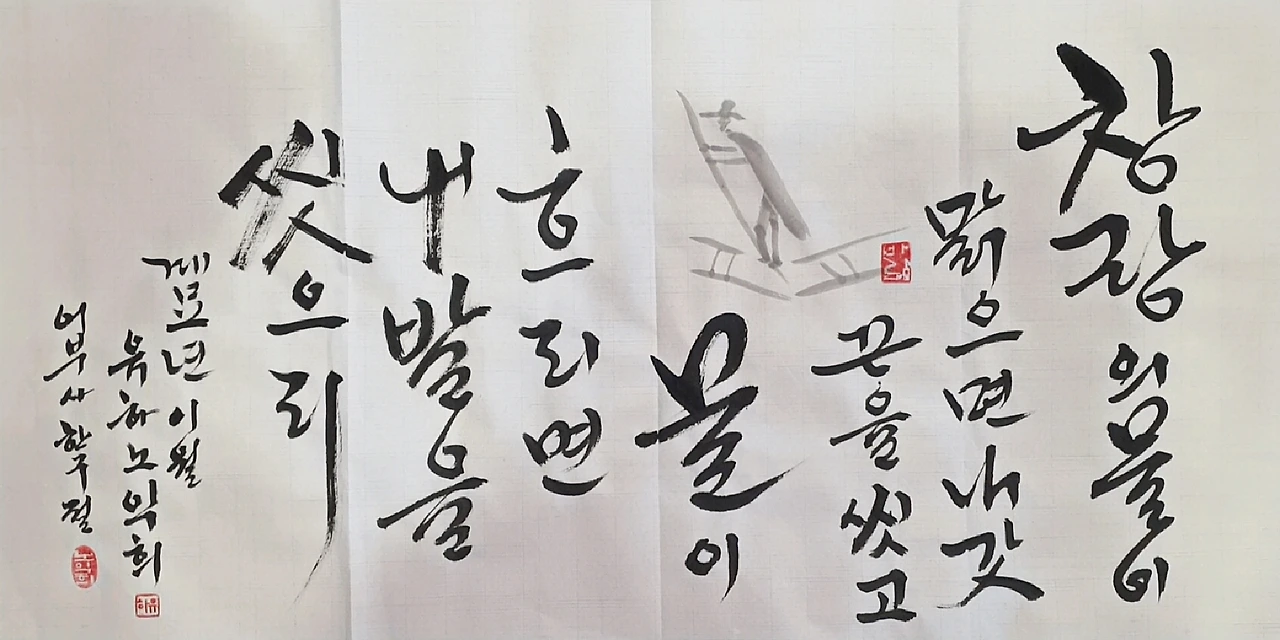 창랑의 물이
맑으면 내 갓
끈을 씻고
물이
흐리면
내 발을
씻으리
계묘년 이월
유하 노익희
어부사 한구절
노익희